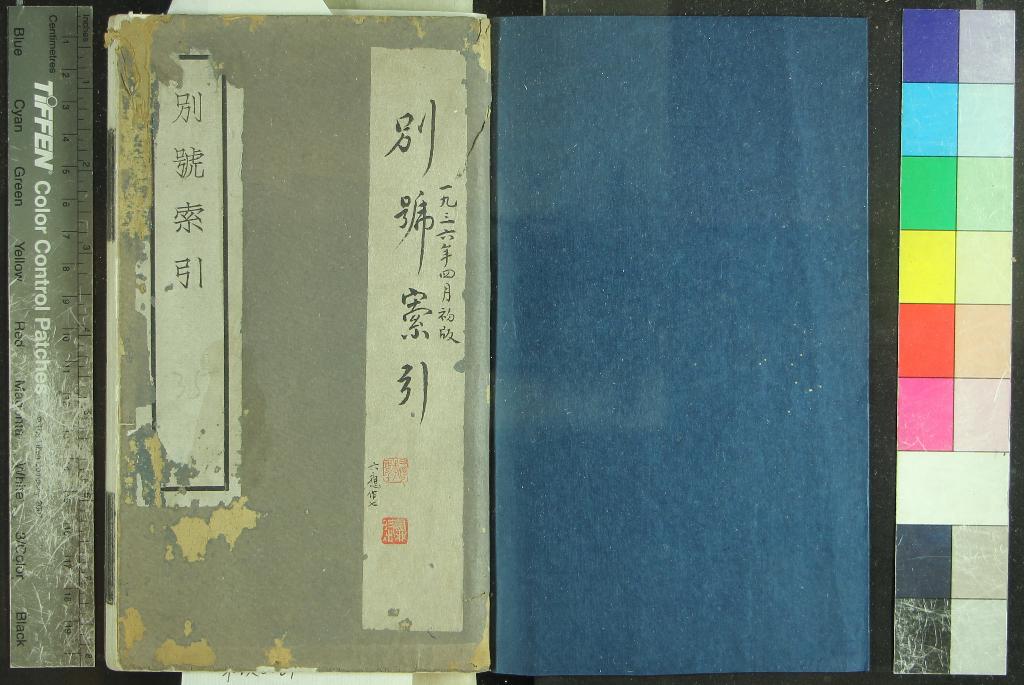 別號索引
別號索引
一九三六年四月初版
Inches
Centimetres
TIFFEN Color Control Patches
Blue Cyan Green Yellow Red Magenta White 3/Color Black